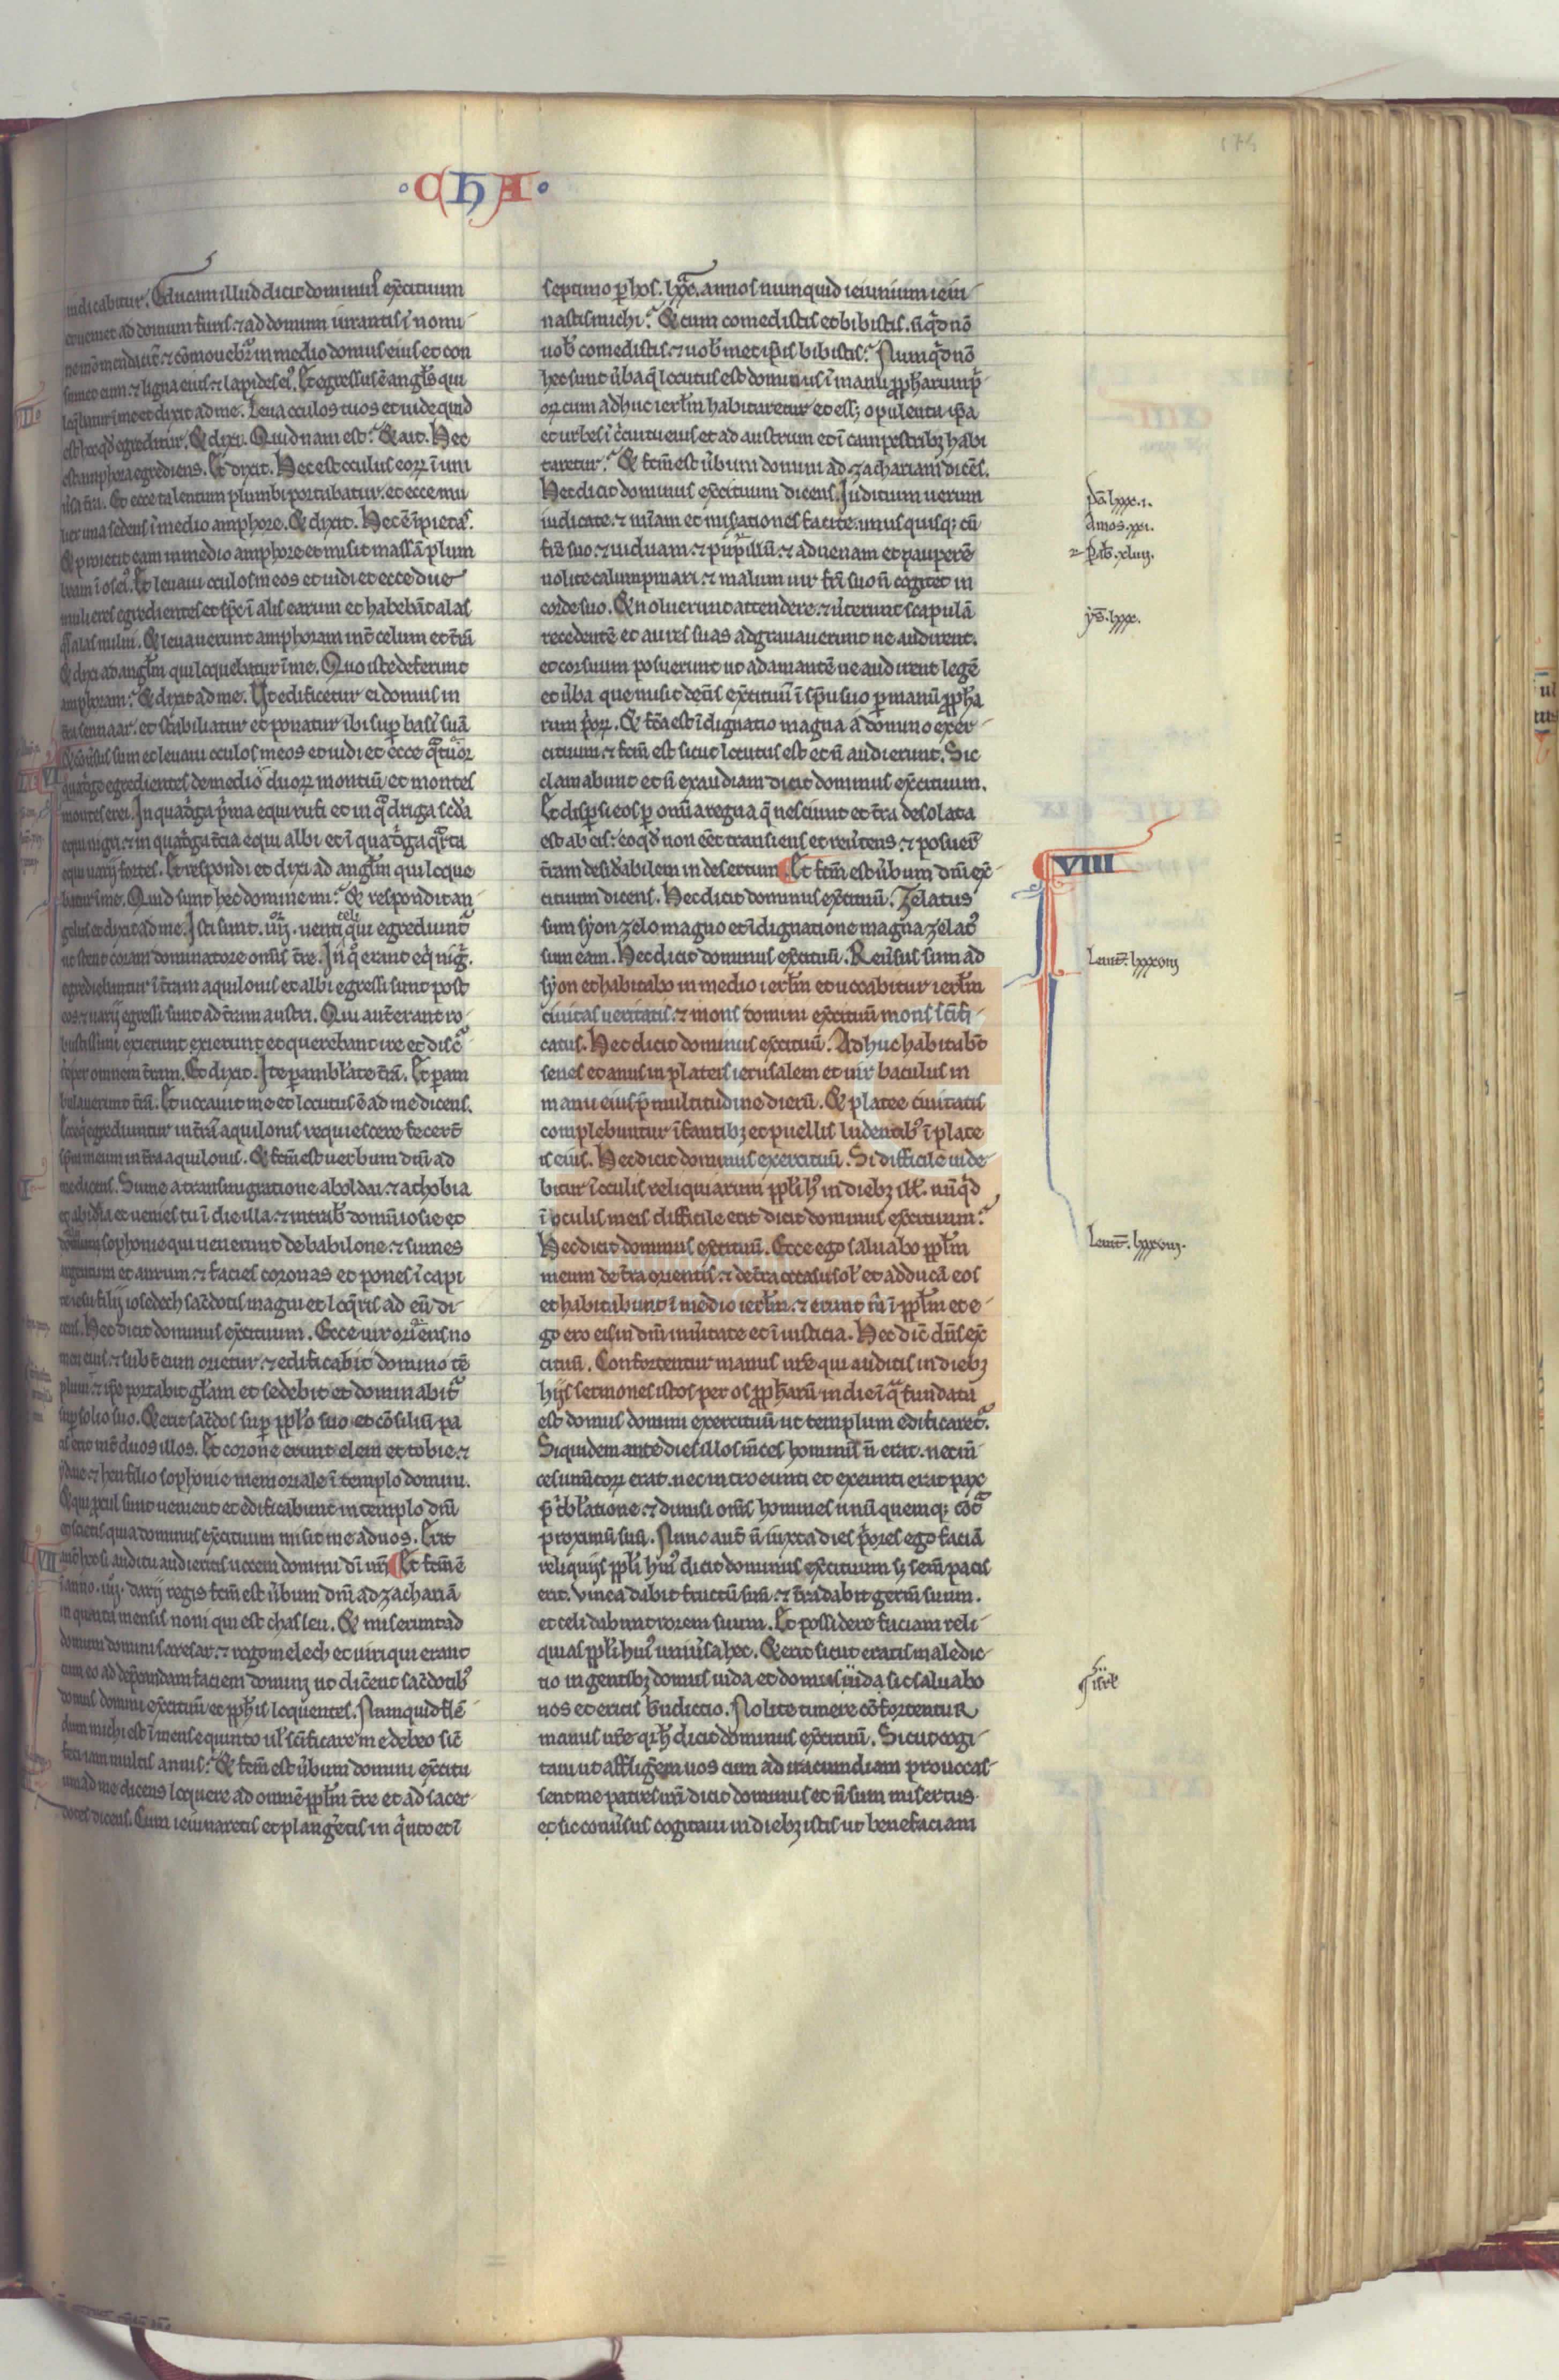 ·CHA·
iudicabitur. Educam illud dicit dominus exc̄ituum
et veniet ad domum furis. ⁊ ad domum iurantis ī nomi-
ne mō mendacit̄. ⁊ cōmorabr̄ in medio domus eius et con
sumet eam. ⁊ ligna eius ⁊ lapides ei᷒. Et egressus ē angl̄s qui
loq̄batur ī me et dixit ad me. Leva oculos tuos et uide quid
est hoc qd̄ egreditur. Et dixi. Quid nam est? Et ait. Hec
est amphora egrediens. Et dixit. Hec est oculus eoꝝ ī uni
u'sa t̄ra. Et ecce talentum plumbi portabatur. et ecce mu
lier una sedens ī medio amphore. Et dixit. Hec ē īpietas.
Et proiecit eam in medio amphore et misit massā plum
beam ī os ei᷒. Et levavi oculos meos et uidi et ecce due
mulieres egredientes et sp̄c ī alis earum et habebāt alas
q̄si alas milui. Et levaverunt amphoram int̄ celum et t̄rā
Et dixi ad angl̄m qui loquebatur ī me. Quo iste deferunt
amphoram? Et dixit ad me. Ut edificetur ei domus in
t̄ra sennaar. et stabiliatur et ponatur ibi sup̄ basē suā
Et cōu'sus sum et levavi oculos meos et uidi et ecce q̄tuor
quadrige egredientes de medio duoꝝ montiū et montes
montes erei. In quadriga p̄ma equi rufi et in q̄driga scd̄a
equi nigri. ⁊ in quadriga t̄cia equi albi et ī quadriga q̄rta
equi uarij fortes. Et respondi et dixi ad angl̄m qui loque
batur ī me. Quid sunt hec domine mi? Et respondit an
gelus et dixit ad me. Isti sunt .iiij. uenti celi qui egrediunt᷑
ut stent coram dominatore om̄s t̄re. In q̊ erant eq̇ nig᷑.
egrediebantur ī t̄ram aquilonis et albi egressi sunt post
eos. ⁊ uarij egressi sunt ad t̄ram austri. Qui aut̄ erant ro-
bustissimi exierunt exierunt et querebant ire et disc᷑
re per omnem t̄ram. Et dixit. Ite perambl̄ate t̄rā. Et peram
bulaverunt t̄rā. Et uocavit me et locutus ē ad me dicens.
Ecce q̇ egrediuntur in t̄rā aquilonis requiescere fecer̄t
sp̄m meum in t̄ra aquilonis. Et fcm̄ est uerbum dn̄i ad
me dicens. Sume a transmigratione ab oldai. ⁊ a thobia
et ab idaia et venies tu ī die illa. ⁊ intrab᷒ domū iosie et
sophonie qui uenerunt de babilone. ⁊ sumes
argentum et aurum. ⁊ facies coronas et pones ī capi
te iesu filij iosedech sac̄dotis magni et loq̄ris ad eū di-
cens. Hec dicit dominus exc̄ituum. Ecce uir oriens no
men eius. ⁊ subt̄ eum orietur. ⁊ edificabit domino tē
plum. ⁊ ip̄e portabit gl̄am et sedebit et dominabit᷑
sup̄ solio suo. Et erit sac̄dos sup̄ solio suo et cōsiliū pa
cis erit int̄ duos illos. Et corone erunt elem et tobie. ⁊
ydaie. ⁊ hen filio sophonie memoriale ī templo domini.
Et qui pcul sunt uenient et edificabunt in templo dn̄i
et scietis quia dominus exc̄ituum misit me ad uos. Erit
VII
aut̄ hoc si auditu audieritis uocem domini dī urī Et fcm̄ ē
ī anno .iiij. darij regis fcm̄ est ūbum dn̄i ad zachariā
in quarta mensis noni qui est chasleu. Et miserunt ad
domum domini sarasar. ⁊ rogomelech et uiri qui erant
cum eo ad dep̄candam faciem domini ut dic̄ent sac̄dotib᷒
domus domini exc̄ituū et pph̄is loquentes. Numquid flē-
dum michi est ī mense quinto ul̄ sc̄ificare me debeo sic̄
feci iam multis annis? Et fcm̄ est ūbum domini exc̄itu
um ad me dicens loquere ad omnē ppl̄m t̄re et ad sacer-
dotes dicens. Cum ieiunaretis et planḡetis in q̇nto et ī
septimo p̄ hos .lxx. annos numquid ieiunium ieiu-
nastis michi? Et cum comedistis et bibistis. n̄ q̇d nō
uob᷒ comedistis. ⁊ uob᷒met ip̄is bibistis? Numq̇d nō
hec sunt ūba q̄ locutus est dominus ī manu pph̄arum p̄-
oꝝ cum adhuc ierl̄m habitaretur et ess; opulenta ip̄a
et urbes ī c̄cuitu eius et ad austrum et ī campestribꝫ habi
taretur? Et fcm̄ est ūbum domini ad zachariam dicēs.
Hec dicit dominus exc̄ituum dicens. Iuditium uerum
iudicate. ⁊ mīam et misationes facite. unusquisq; cū
fr̄e suo. ⁊ uiduam. ⁊ pupillū. ⁊ advenam et pauperē
nolite calumpniari. ⁊ malum uir fr̄i suo n̄ cogitet in
corde suo. Et noluerunt attendere. ⁊ ūterunt scapulā
recedentē et aures suas adgravaverunt ne audirent.
et cor suum posuerunt ut adamantē ne audirent legē
et ūba que misit deus exc̄ituū ī sp̄u suo p̄ manū pph̄a
rum p̄oꝝ. Et fc̄a est īdignatio magna a domino exer-
cituum. ⁊ fcm̄ est sicut locutus est et n̄ audierunt. Sic
clamabunt et n̄ exaudiam dicit dominus exc̄ituum.
Et disp̄si eos p̄ om̄a regna q̄ nesciunt et t̄ra desolata
est ab eis: eo qd̄ non eēt transiens et reu̇tens. ⁊ posuer̄
t̄ram desid̄abilem in desertum Et fcm̄ est ūbum dn̄i exc̄
VIII
cituum dicens. Hec dicit dominus exc̄ituū. Zelatus
sum syon zelo magno et īdignatione magna zelat᷒
sum eam. Hec dicit dominus exc̄ituū. Reūsus sum ad
syon et habitabo in medio ierl̄m et uocabitur ierl̄m
civitas veritatis. ⁊ mons domini exc̄ituū mons sc̄ifi
catus. Hec dicit dominus exc̄ituū. Adhuc habitab̄t
senes et anus in plateis ierusalem et uir baculus in
manu eius p̄ multitudine dierū. Et platee civitatis
complebuntur īfantibꝫ et puellis ludentib᷒ ī plate
is eius. Hec dicit dominus exercituū. Si difficile uide-
bitur ī oculis reliquiarum ppl̄i h᷒ in diebꝫ ill̄. nūq̇d
ī oculis meis difficile erit dicit dominus exc̄ituum?
Hec dicit dominus exc̄ituū. Ecce ego salvabo ppl̄m
meum de t̄ra orientis. ⁊ de t̄ra occasus sol᷒ et adducā eos
et habitabunt ī medio ierl̄m. ⁊ erunt m̄ ī ppl̄m et e-
go ero eis in dm̄ in ūitate et ī iusticia. Hec dic̄ dn̄s exc̄
cituū. Confortentur manus ur̄e qui auditis in diebꝫ
hijs sermones istos per os pph̄arū in die ī q̄ fundata
est domus domini exercituū ut templum edificaret᷑.
Siquidem ante dies illos m̄ces hominū n̄ erat. nec m̄-
ces iumtoꝝ erat. nec introeunti et exeunti erat pax
p̄ t̄bl̄atione. ⁊ dimisi om̄s homines unū quemq; cōt᷑
proximū suū. Nunc aut̄ n̄ iuxta dies p̄ores ego faciā
reliquijs ppl̄i hui᷒ dicit dominus exc̄ituum sꝫ sem̄ pacis
erit. Vinea dabit fructū suū. ⁊ t̄ra dabit germ̄ suum.
et celi dabunt rorem suum. Et possidere faciam reli-
quias ppl̄i hui᷒ uniūsa hec. Et erit sicut eratis maledic-
tio in gentibꝫ domus iuda et domus iuda sic salvabo
uos et eritis b̄ndictio. Nolite timere cōfortentur
manus ur̄e q̇ h̄ dicit dominus exc̄ituū. Sicut cogi-
tavi ut affligerem uos cum ad iracundiam provocas-
sent me patres ur̄i dicit dominus et n̄ sum misertus.
et sic conūsus cogitavi in diebꝫ istis ut benefaciam
Amos.
ys̄. lxx.
Leuit̄. lxxxviij
Leuit̄. lxxxviij.
isrl̄